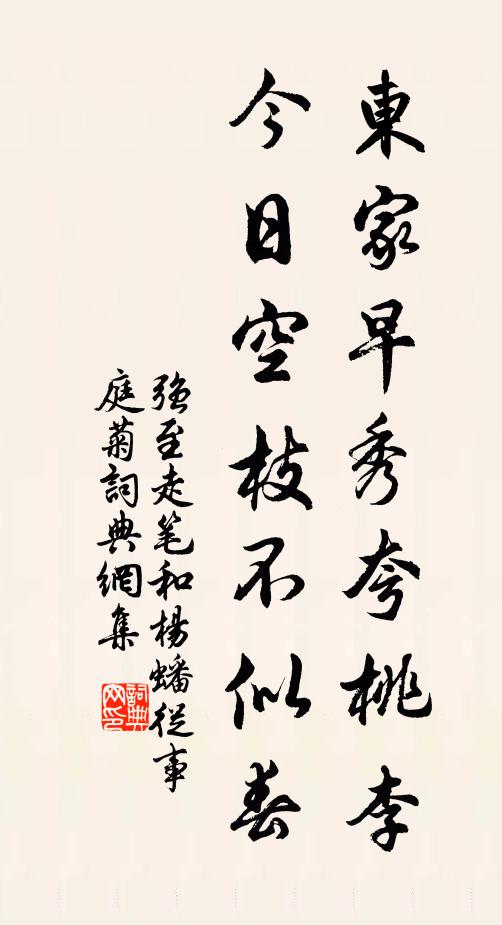 東家早秀夸桃李
今日空枝不似春
強至走笔和楊蟠從事
庭菊詞典網集
詞典网印